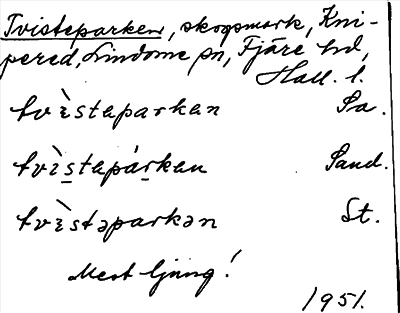 Tvisteparken, skogsmark, Kni-
pered, Lindome sn, Fjäre hd,
Hall. l.
tvìstaparkan Pa.
tvìstapárkan Sand.
tvìstəparkən St.
Mest ljung!
1951.